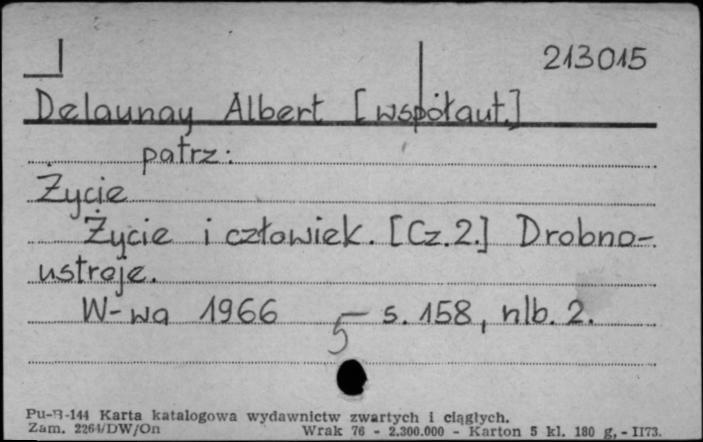 213015
Delaunay Albert [współaut.]
patrz:
Życie
Życie i człowiek. [Cz.2.] Drobno-
ustroje.
W-wa 1966 5 s. 158, nlb. 2.
Pu-B-144 Karta katalogowa wydawnictw zwartych i ciągłych.
Zam. 2264/DW/On Wrak 76 - 2.300.000 - Karton 5 kl. 180 g. - II73.